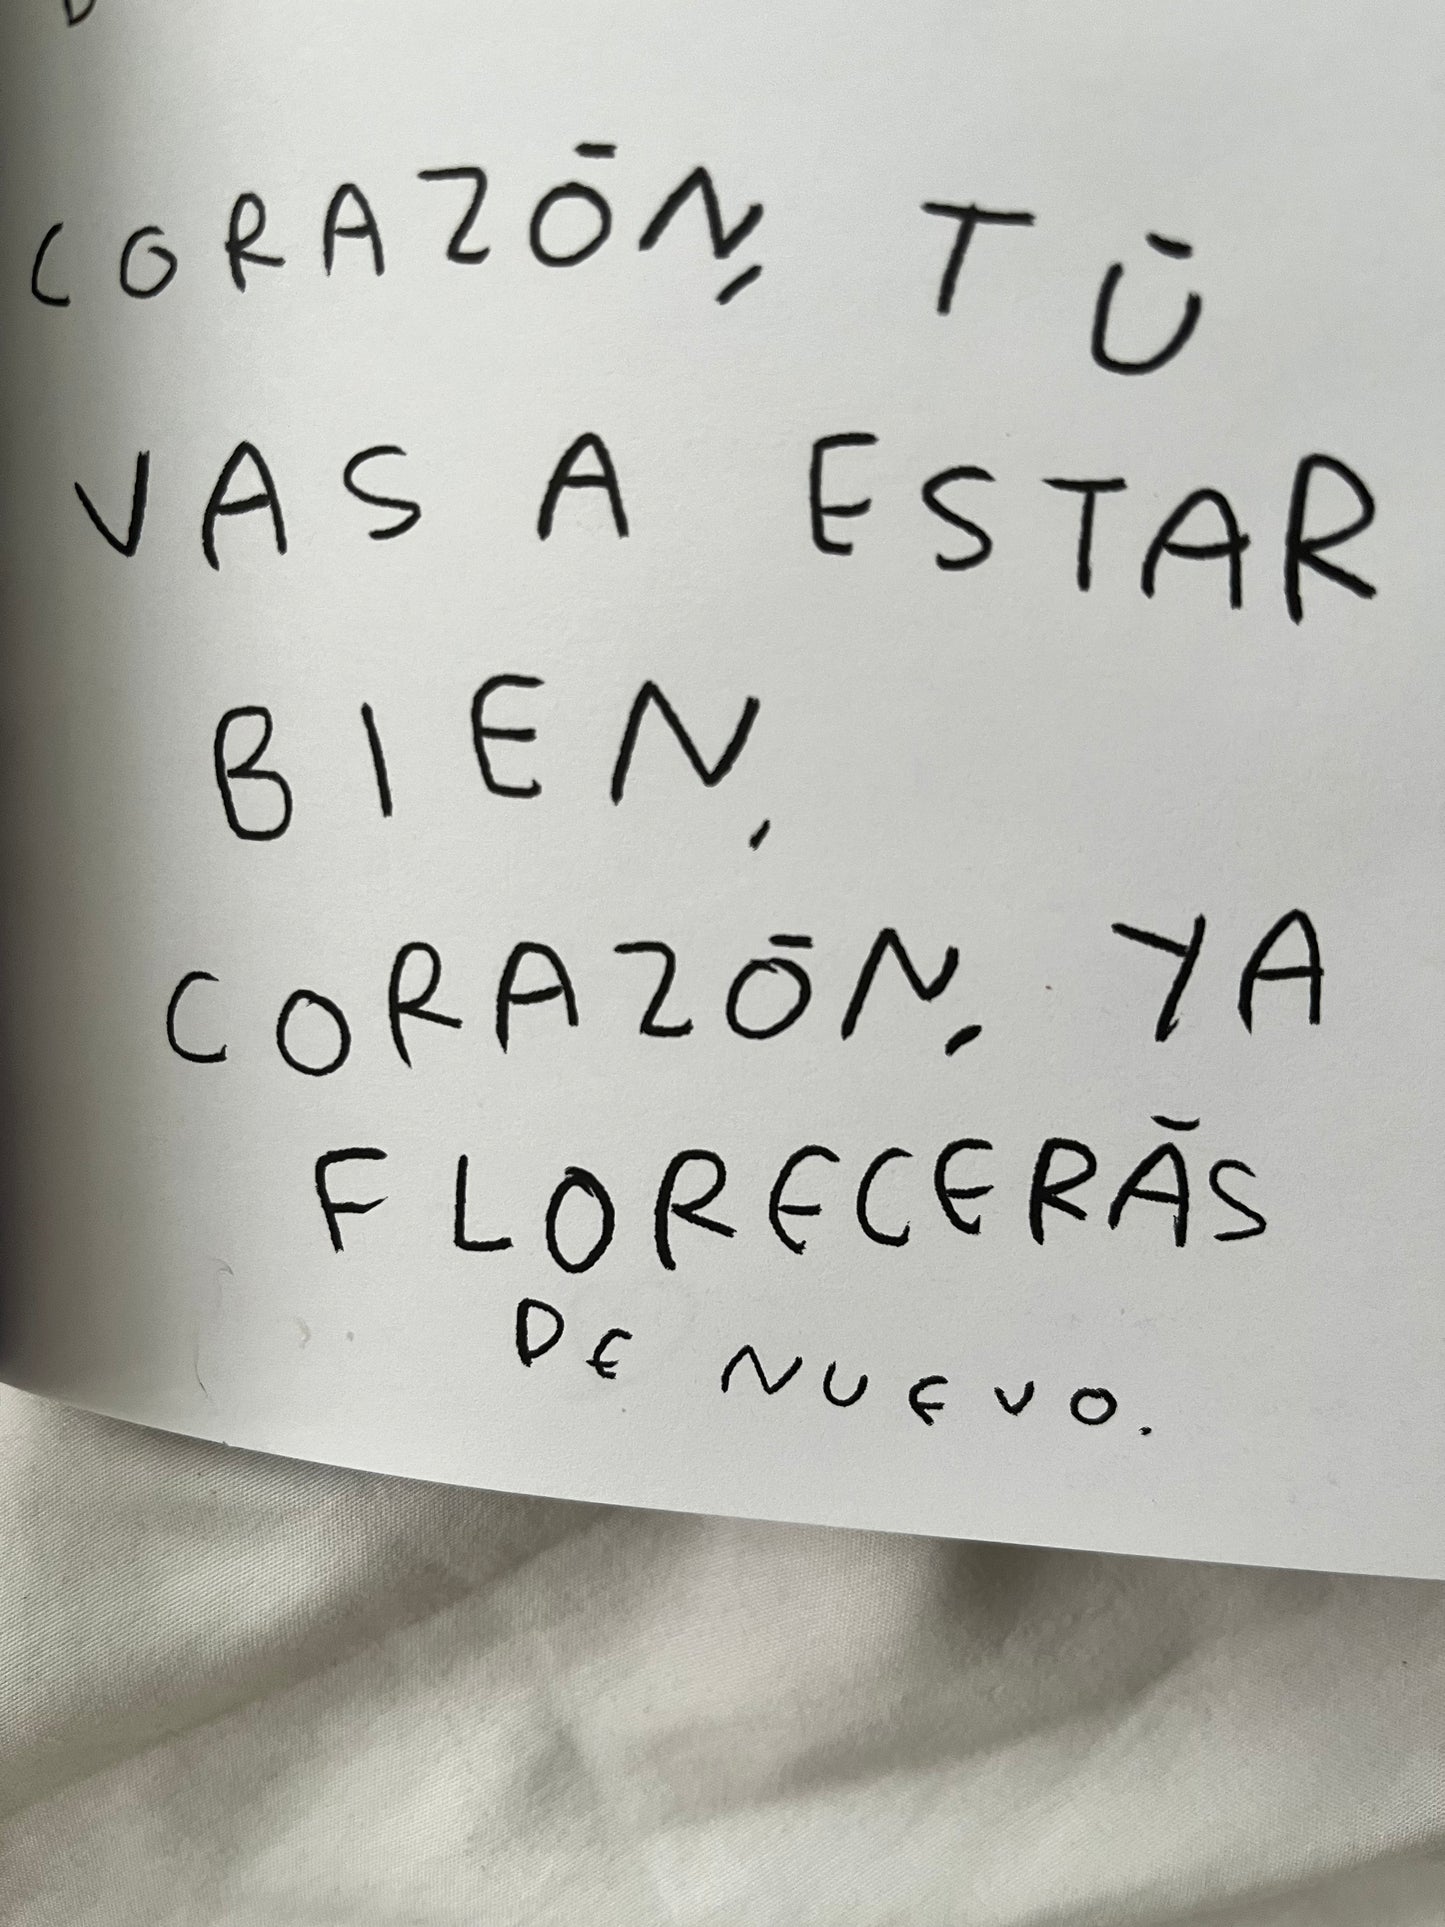 CORAZÓN, TÚ
VAS A ESTAR
BIEN,
CORAZÓN, YA
FLORECERÁS
DE NUEVO.